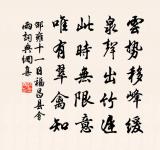 雲勢移峰緩
泉聲出竹遲
此時無限意
唯有翠禽知
邵雍十一日福昌縣會
雨詞典網